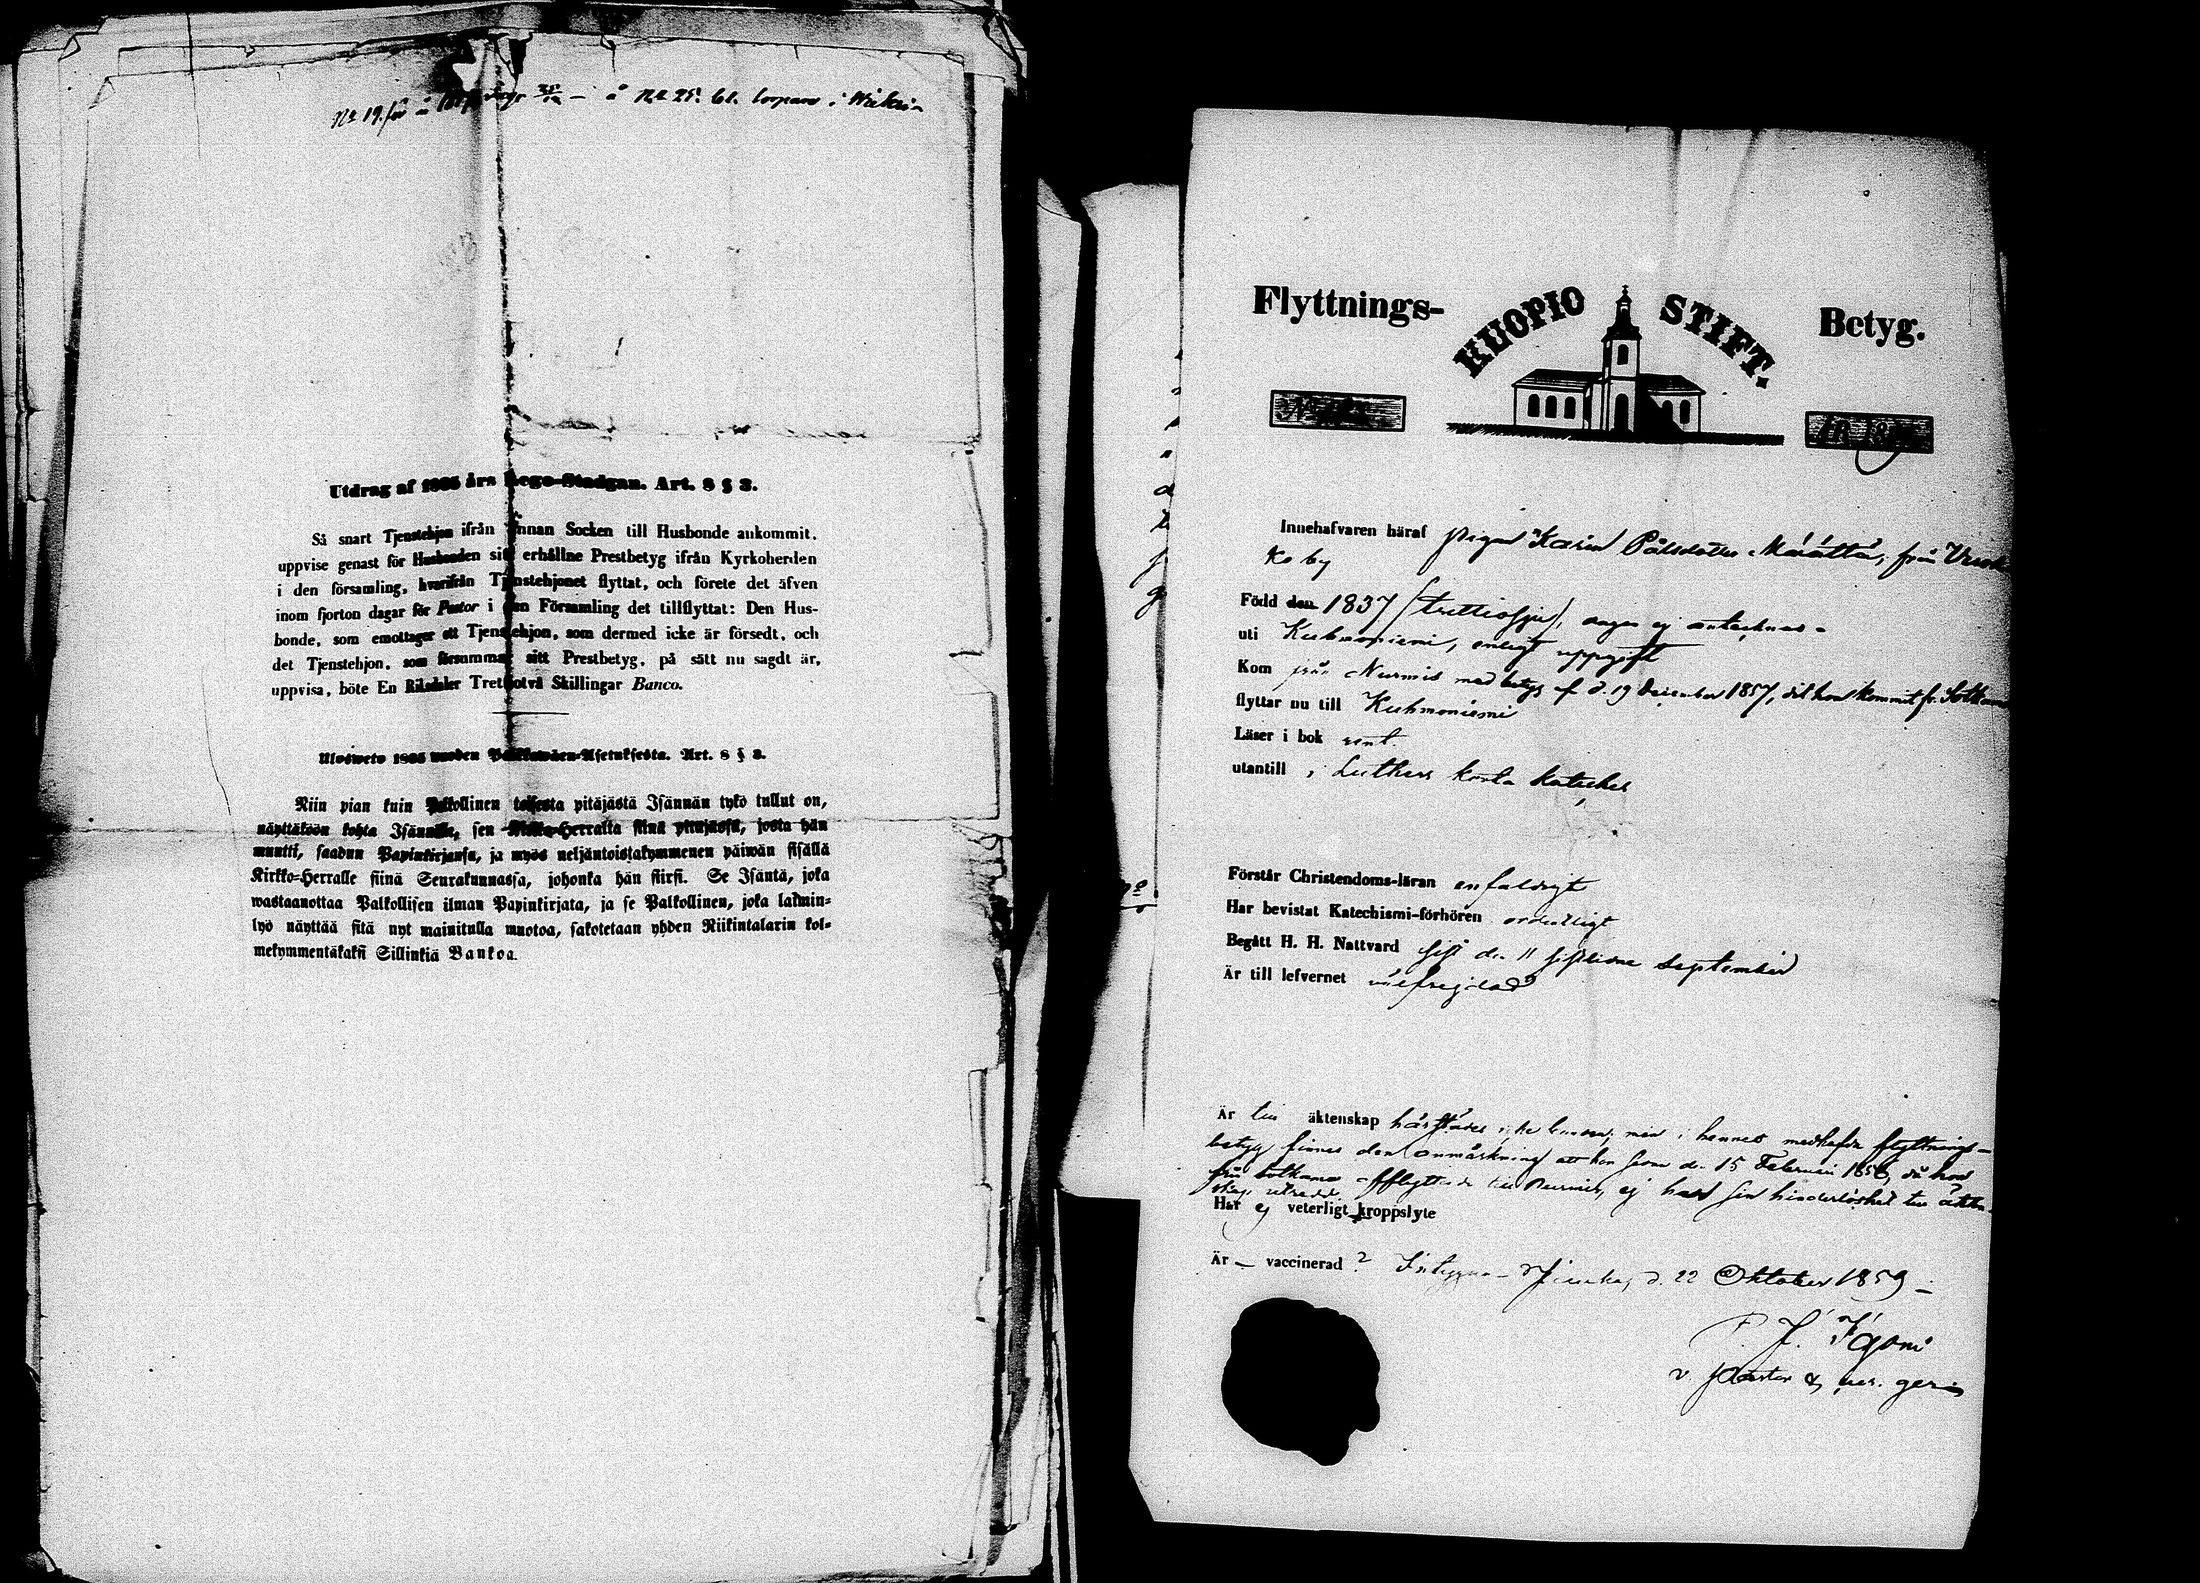 å No 25. bl. torpare i Wieksi
Utdrag af 1805 års Lego-Stadgan. Art. 8 § 3.
Så snart Tjenstehjon ifrån annan Socken till Husbonde ankommit,
uppvise genast för Husbonden sitt erhållne Prestbetyg ifrån Kyrkoherden
i den församling, hvarifrån Tjenstehjonet flyttat, och förete det äfven
inom fjorton dagar för Pastor i den Församling det tillflyttat: Den Hus-
bonde, som emottager ett Tjenstehjon, som dermed icke är försedt, och
det Tjenstehjon, som försummar sitt Prestbetyg, på sätt nu sagdt är,
uppvisa, böte En Riksdaler Trettiotvå Skillingar Banco.
Ulosweto 1805 wuoden Palkkawäen-Asetuksesta. Art. 8 § 3.
Niin pian kuin Palkollinen toisesta pitäjästä Isännän tykö tullut on,
näyttäköön kohta Isännälle, sen Kirkko-Herralta siinä pitäjässä, josta hän
muutti, saadun Papinkirjansa, ja myös neljäntoistakymmenen päiwän sisällä
Kirkko-Herralle siinä Seurakunnassa, johonka hän siirsi. Se Isäntä, joka
wastaanottaa Palkollisen ilman Papinkirjata, ja se Palkollinen, joka laimin-
lyö näyttää sitä nyt mainitulla muotoa, sakotetaan yhden Riikintalarin kol-
mekymmentäkaksi Sillinkiä Bankoa.
Flyttnings- KUOPIO STIFT. Betyg.
Innehafvaren häraf pigan Karin Pålsdotter Määttä, från
koby
Född den 1837 (trettiosju), dagen ej antecknad
uti Kuhmoniemi, enligt uppgift
Kom från Nurmis med betyg af d. 19 December 1857, dit hon kommit fr. Sotkamo
flyttar nu till Kuhmoniemi
Läser i bok rent.
utantill i Luthers korta kateches
Förstår Christendoms-läran enfaldigt
Har bevistat Katechismi-förhören ordentligt
Begått H. H. Nattvard sist den 11 sistlidne September
Är till lefvernet välfrejdad
Är till äktenskap härstädes icke bunden; men i hennes medhafda flyttnings-
betyg finnes den anmärkning att hon sedan den 15 Februari 1856, då hon
från Sotkamo afflyttade till Nurmis, ej haft sin hinderlöshet till äkten-
skap utredd.
Har ej veterligt kroppslyte
Är – vaccinerad? Intygar d. 22 Oktober 1859
v Pastor &